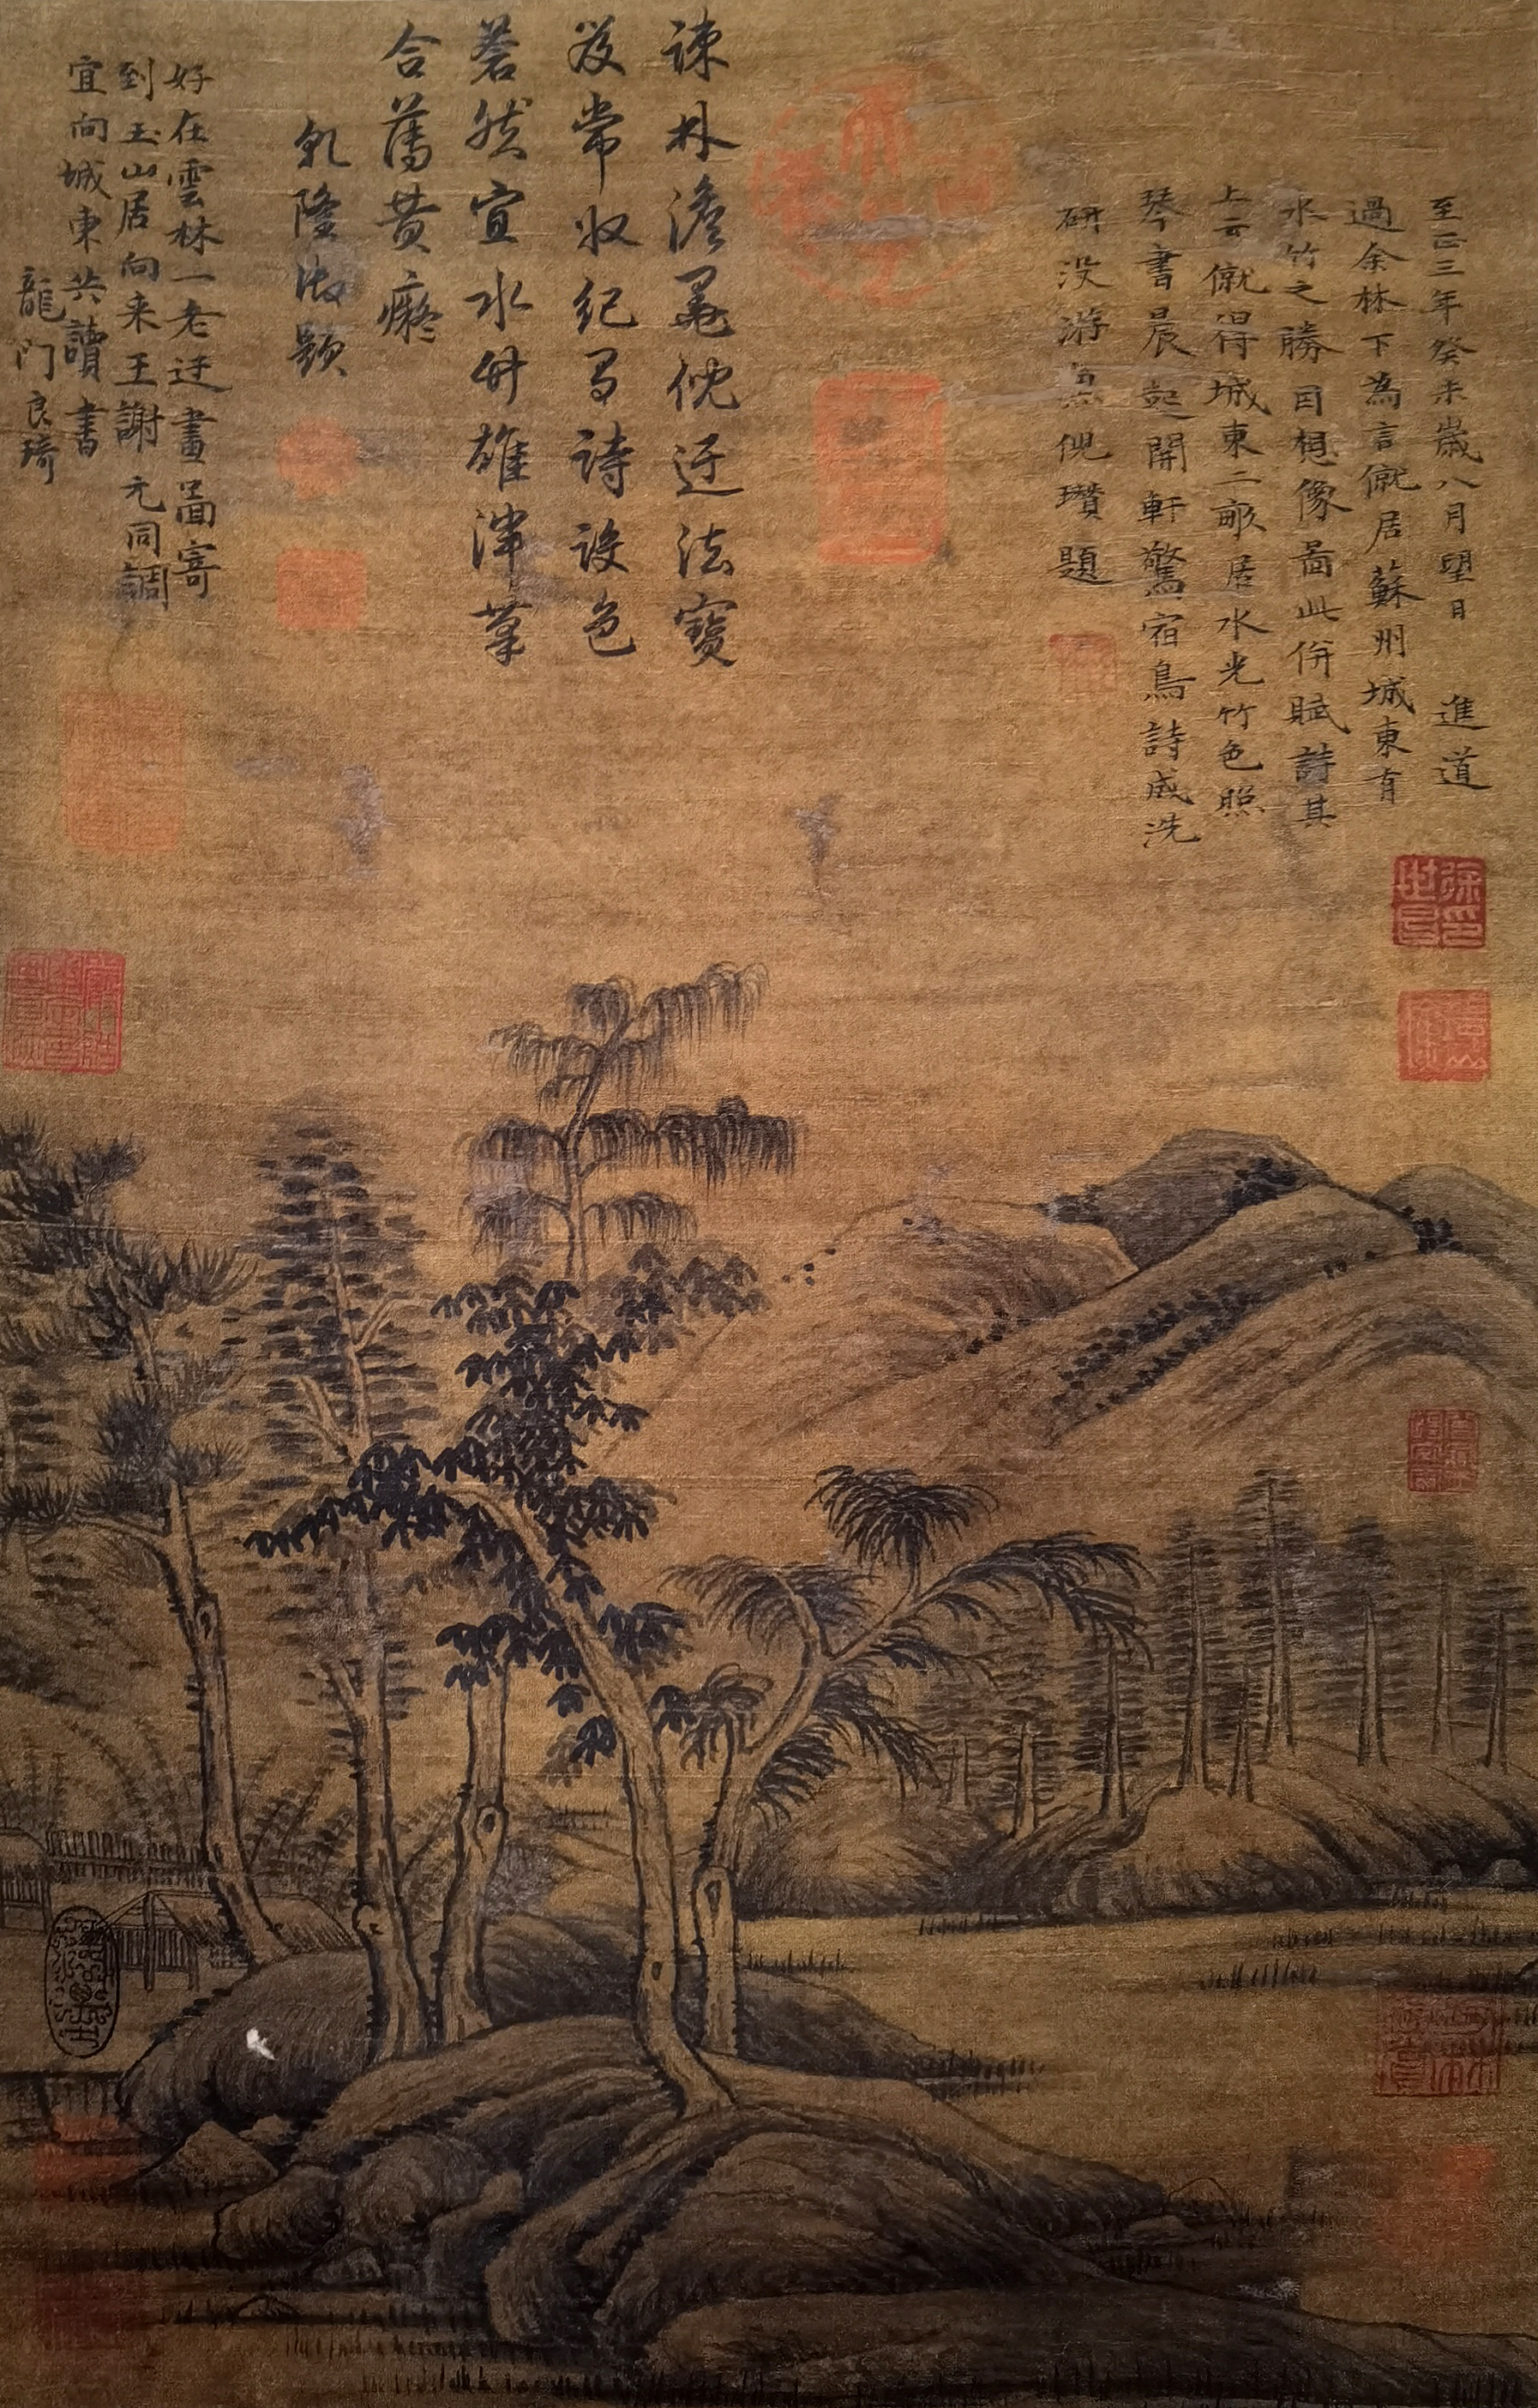 至正三年癸未歲八月望日 進道
過余林下為言僦居蘇州城東有
水竹之勝因想像啚此併賦詩其
上云僦得城東二畝居水光竹色照
琴書晨起開軒驚宿鳥詩成洗
研没游魚倪瓚題
疎林澹寫倪迂法寶
笈常收紀詩設色
蒼然宜水竹雄渾筆
合黄癡
乾隆御題
好在雲林一老迂畫啚寄
到玉山居向来王謝元同調
宜向城東共讀書
龍門良琦